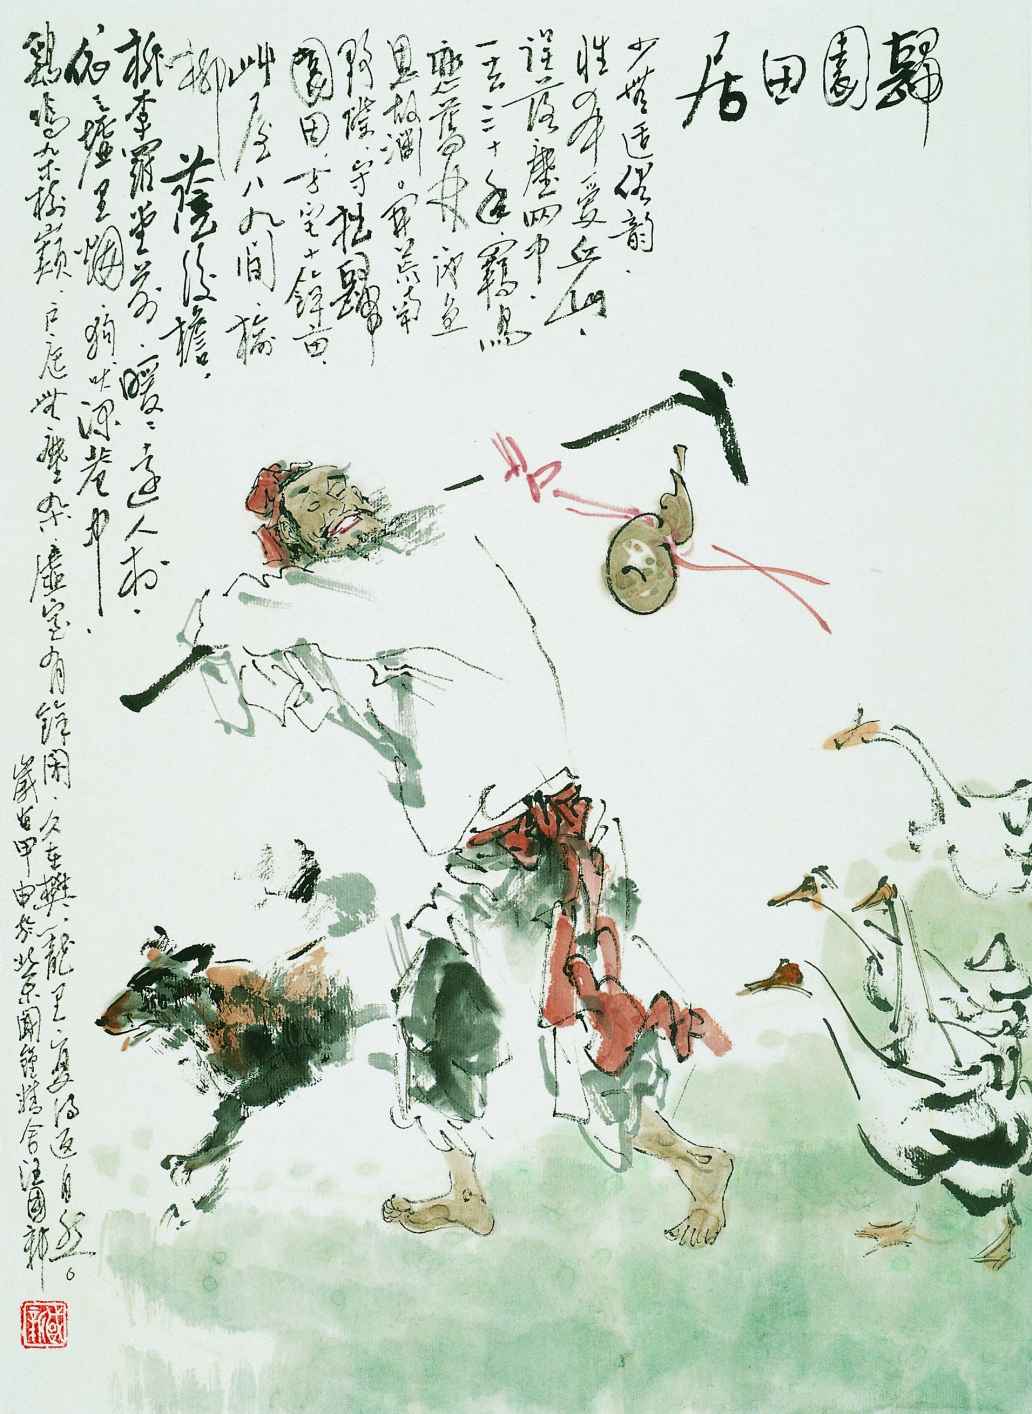 歸園田居
少無適俗韻.
性本愛丘山.
誤落塵网中.
一去三十年.羈鳥
戀舊林.池魚
思故淵。開荒南
野際.守拙歸
園田.方宅十餘畝.
艸屋八九間.榆
柳蔭後檐.
桃李羅堂前.曖〻遠人村.
依〻墟里烟.狗吠深巷中.
鷄鳴桑樹巔.戶庭無塵雜.虛室有餘閑.久在樊籠里.復得返自然。
歲在甲申於北京聞鐘精舍汪國新
國新